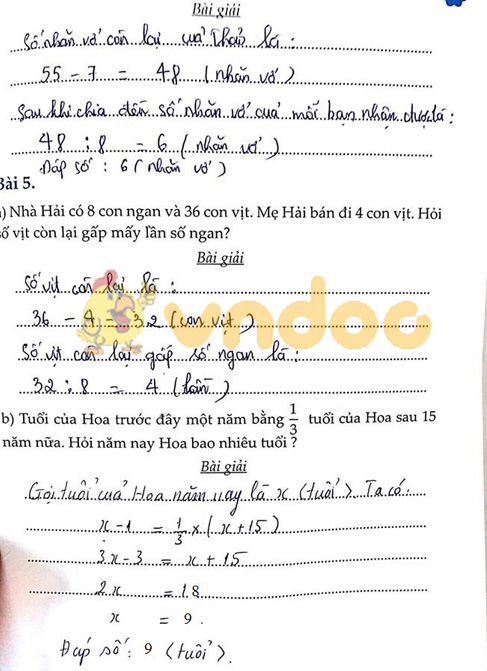 Bài giải
Số nhãn vở còn lại của Thảo là:
55 - 7 = 48 (nhãn vở)
Sau khi chia đều số nhãn vở của mỗi bạn nhận được là:
48 : 8 = 6 (nhãn vở)
Đáp số : 6 (nhãn vở)
Bài 5.
a) Nhà Hải có 8 con ngan và 36 con vịt. Mẹ Hải bán đi 4 con vịt. Hỏi
số vịt còn lại gấp mấy lần số ngan?
Bài giải
Số vịt còn lại là :
36 - 4 = 32 (con vịt)
vndoc
Số vịt còn lại gấp số ngan là:
32 : 8 = 4 (lần)
b) Tuổi của Hoa trước đây một năm bằng 1/3 tuổi của Hoa sau 15
năm nữa. Hỏi năm nay Hoa bao nhiêu tuổi ?
Bài giải
Gọi tuổi của Hoa năm nay là x (tuổi). Ta có:
x - 1 = 1/3 x (x + 15)
3x - 3 = x + 15
2x = 18
x = 9 .
Đáp số: 9 (tuổi).